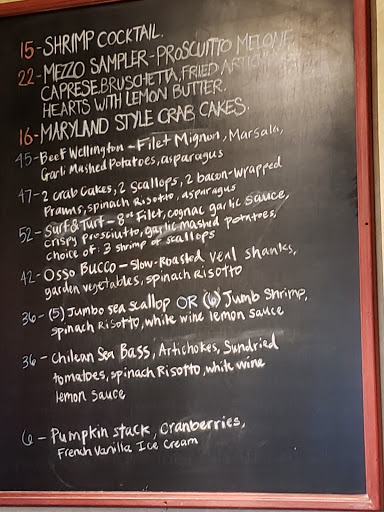 15-SHRIMP COCKTAIL.
22-MEZZO SAMPLER-PROSCUITTO MELONE,
CAPRESE.BRUSCHETTA, FRIED ARTICHOKE
HEARTS WITH LEMON BUTTER.
16-MARYLAND STYLE CRAB CAKES.
45-Beef Wellington - Filet Mignon, Marsala,
Garli Mashed Potatoes, asparagus
47-2 crab cakes, 2 scallops, 2 bacon-wrapped
Prawns, spinach Risotto, asparagus
52-Surf & Turf - 8oz Filet, cognac garlic sauce,
crispy presciutto, garlic mashed potatoes,
choice of: 3 shrimp or scallops
42-Osso Bucco-Slow-Roasted veal shanks,
garden vegetables, spinach risotto
36-(5) Jumbo sea scallop OR (6) Jumb Shrimp,
spinach Risotto, white wine lemon sauce
36-Chilean Sea Bass, Artichokes, Sundried
tomatoes, spinach Risotto, white wine
lemon sauce
6-Pumpkin stack, cranberries,
French Vanilla Ice Cream